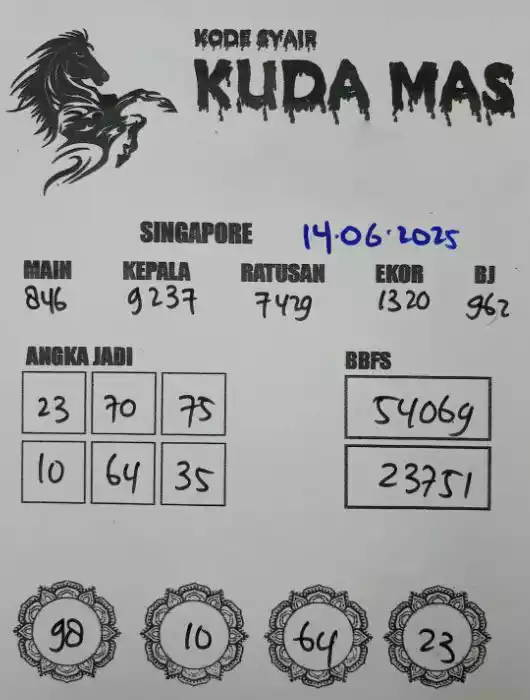 KODE SYAIR
KUDA MAS
SINGAPORE 14.06.2025
MAIN KEPALA RATUSAN EKOR BJ
846 9237 7429 1320 962
ANGKA JADI BBFS
23 70 75 54069
10 64 35 23751
98 10 64 23